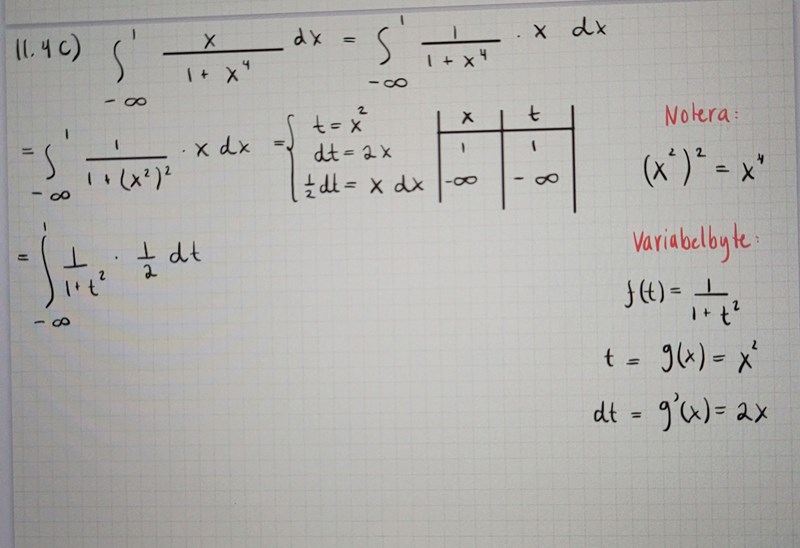 11.4c) ∫_{-∞}^{1} x/(1 + x⁴) dx = ∫_{-∞}^{1} 1/(1 + x⁴) · x dx
= ∫_{-∞}^{1} 1/(1 + (x²)²) · x dx = { t = x²
dt = 2x
½ dt = x dx
x | t
1 | 1
-∞ | -∞
= ∫_{-∞}^{1} 1/(1+t²) · ½ dt
Notera:
(x²)² = x⁴
Variabelbyte:
f(t) = 1/(1 + t²)
t = g(x) = x²
dt = g'(x) = 2x